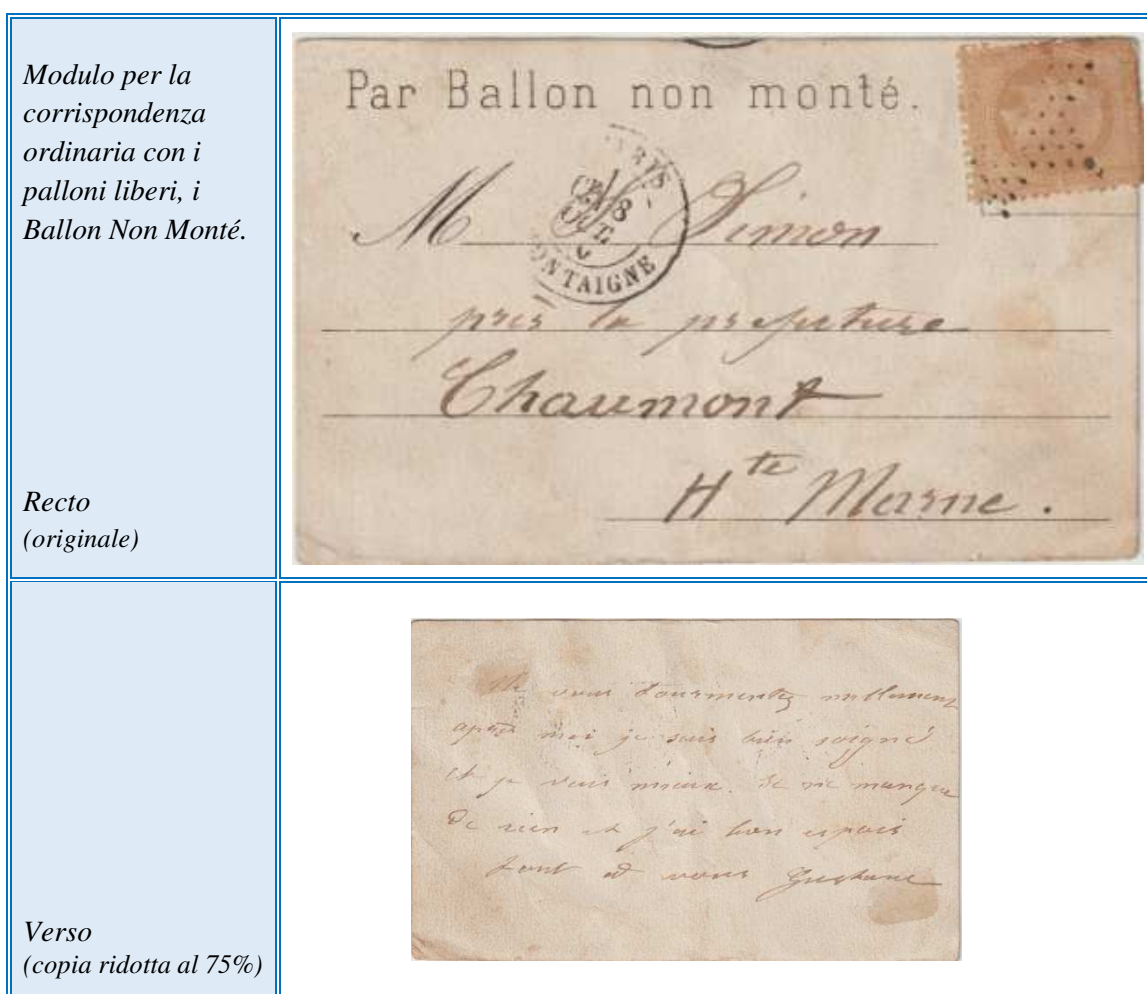 Modulo per la
corrispondenza
ordinaria con i
palloni liberi, i
Ballon Non Monté.
Recto
(originale)
Par Ballon non monté.
PARIS
8
OCT.
MONTAIGNE
M Simon
près la prefecture
Chaumont
Hte Marne.
Verso
(copia ridotta al 75%)
Ne vous tourmentez nullement
après moi je suis bien soigné
et je vais mieux. Je ne manque
de rien et j'ai bon espoir
tout à vous Gustave